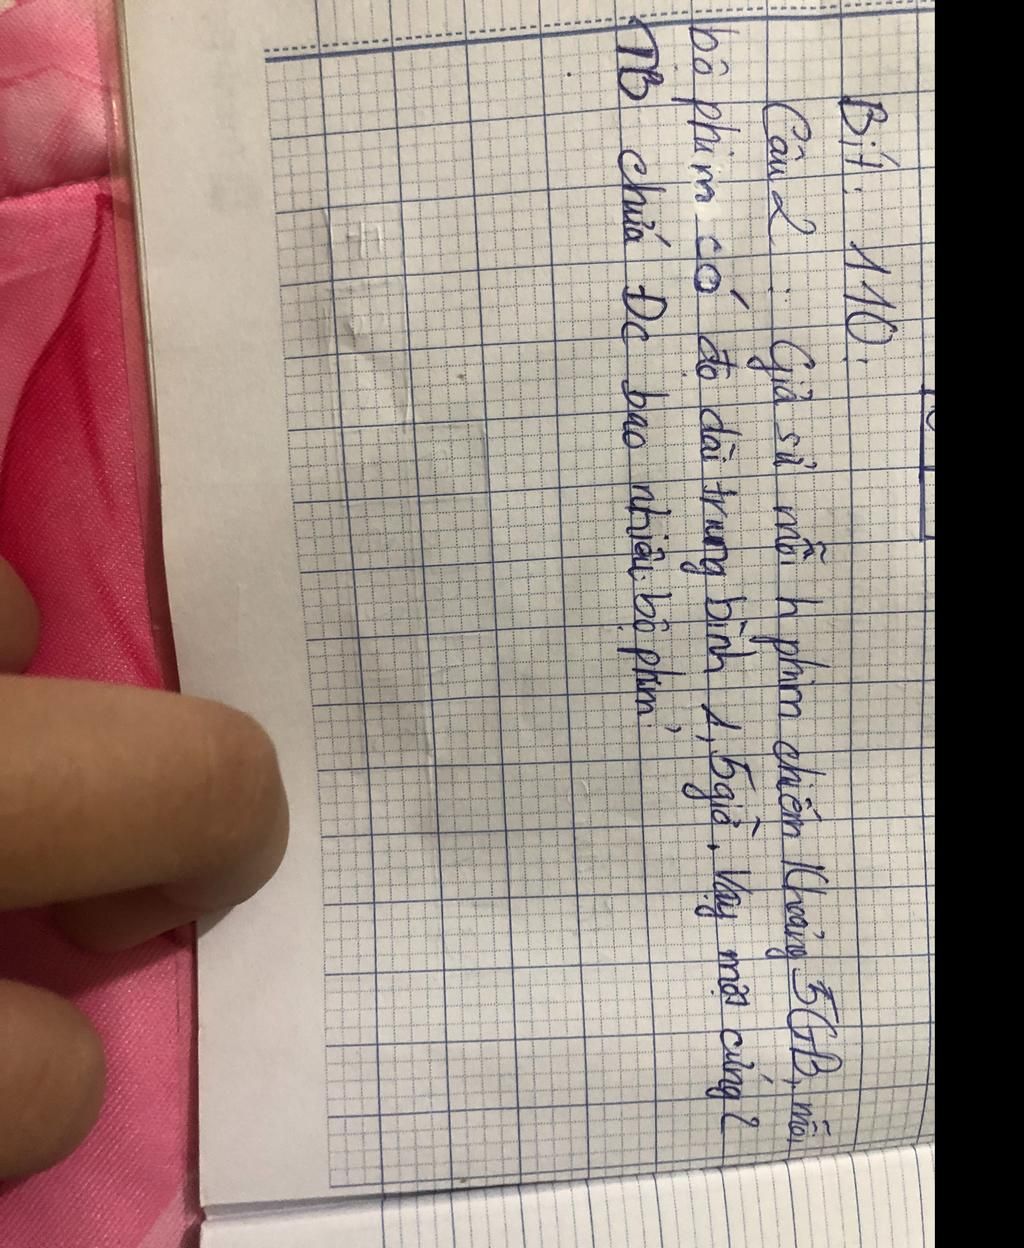 Bit: 110.
Câu 2: Giả sử mỗi h phim chiếm Khoảng 5GB, mỗi
bộ phim có độ dài trung bình 1,5giờ. Vậy một cứng 2
TB chứa Đc bao nhiêu bộ phim?